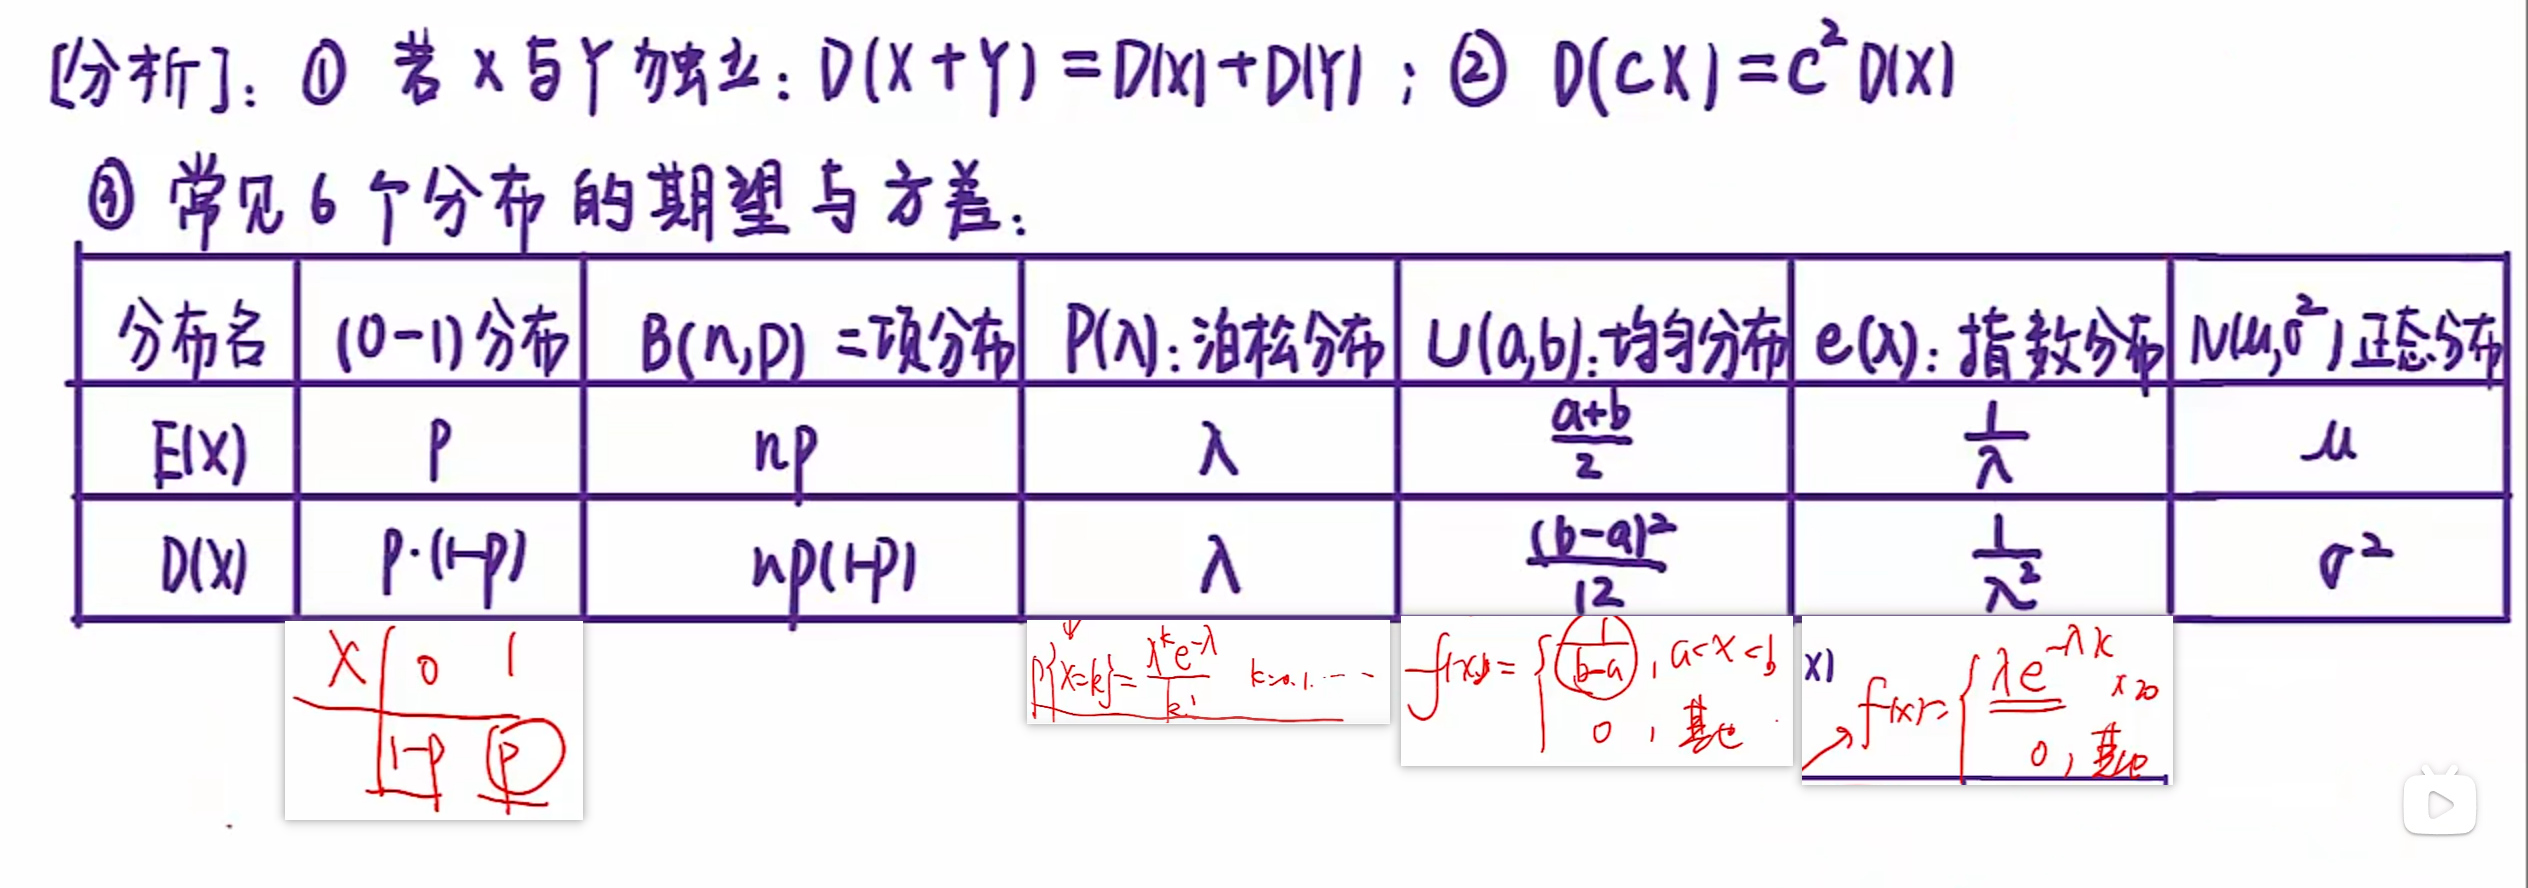 [分析]: ① 若X与Y独立: D(X+Y)=D(X)+D(Y) ; ② D(CX)=C²D(X)
③ 常见6个分布的期望与方差:
分布名 (0-1)分布 B(n,p) 二项分布 P(λ): 泊松分布 U(a,b): 均匀分布 e(λ): 指数分布 N(μ,σ²) 正态分布
E(X) p np λ (a+b)/2 1/λ μ
D(X) p·(1-p) np(1-p) λ (b-a)²/12 1/λ² σ²
X 0 1
1-p p
P{X=k}=λ^k e^-λ/k! k=0.1.……
f(x)={1/(b-a), a<x<b
0, 其他
x)
f(x)={λe^-λx x>0
0, 其他